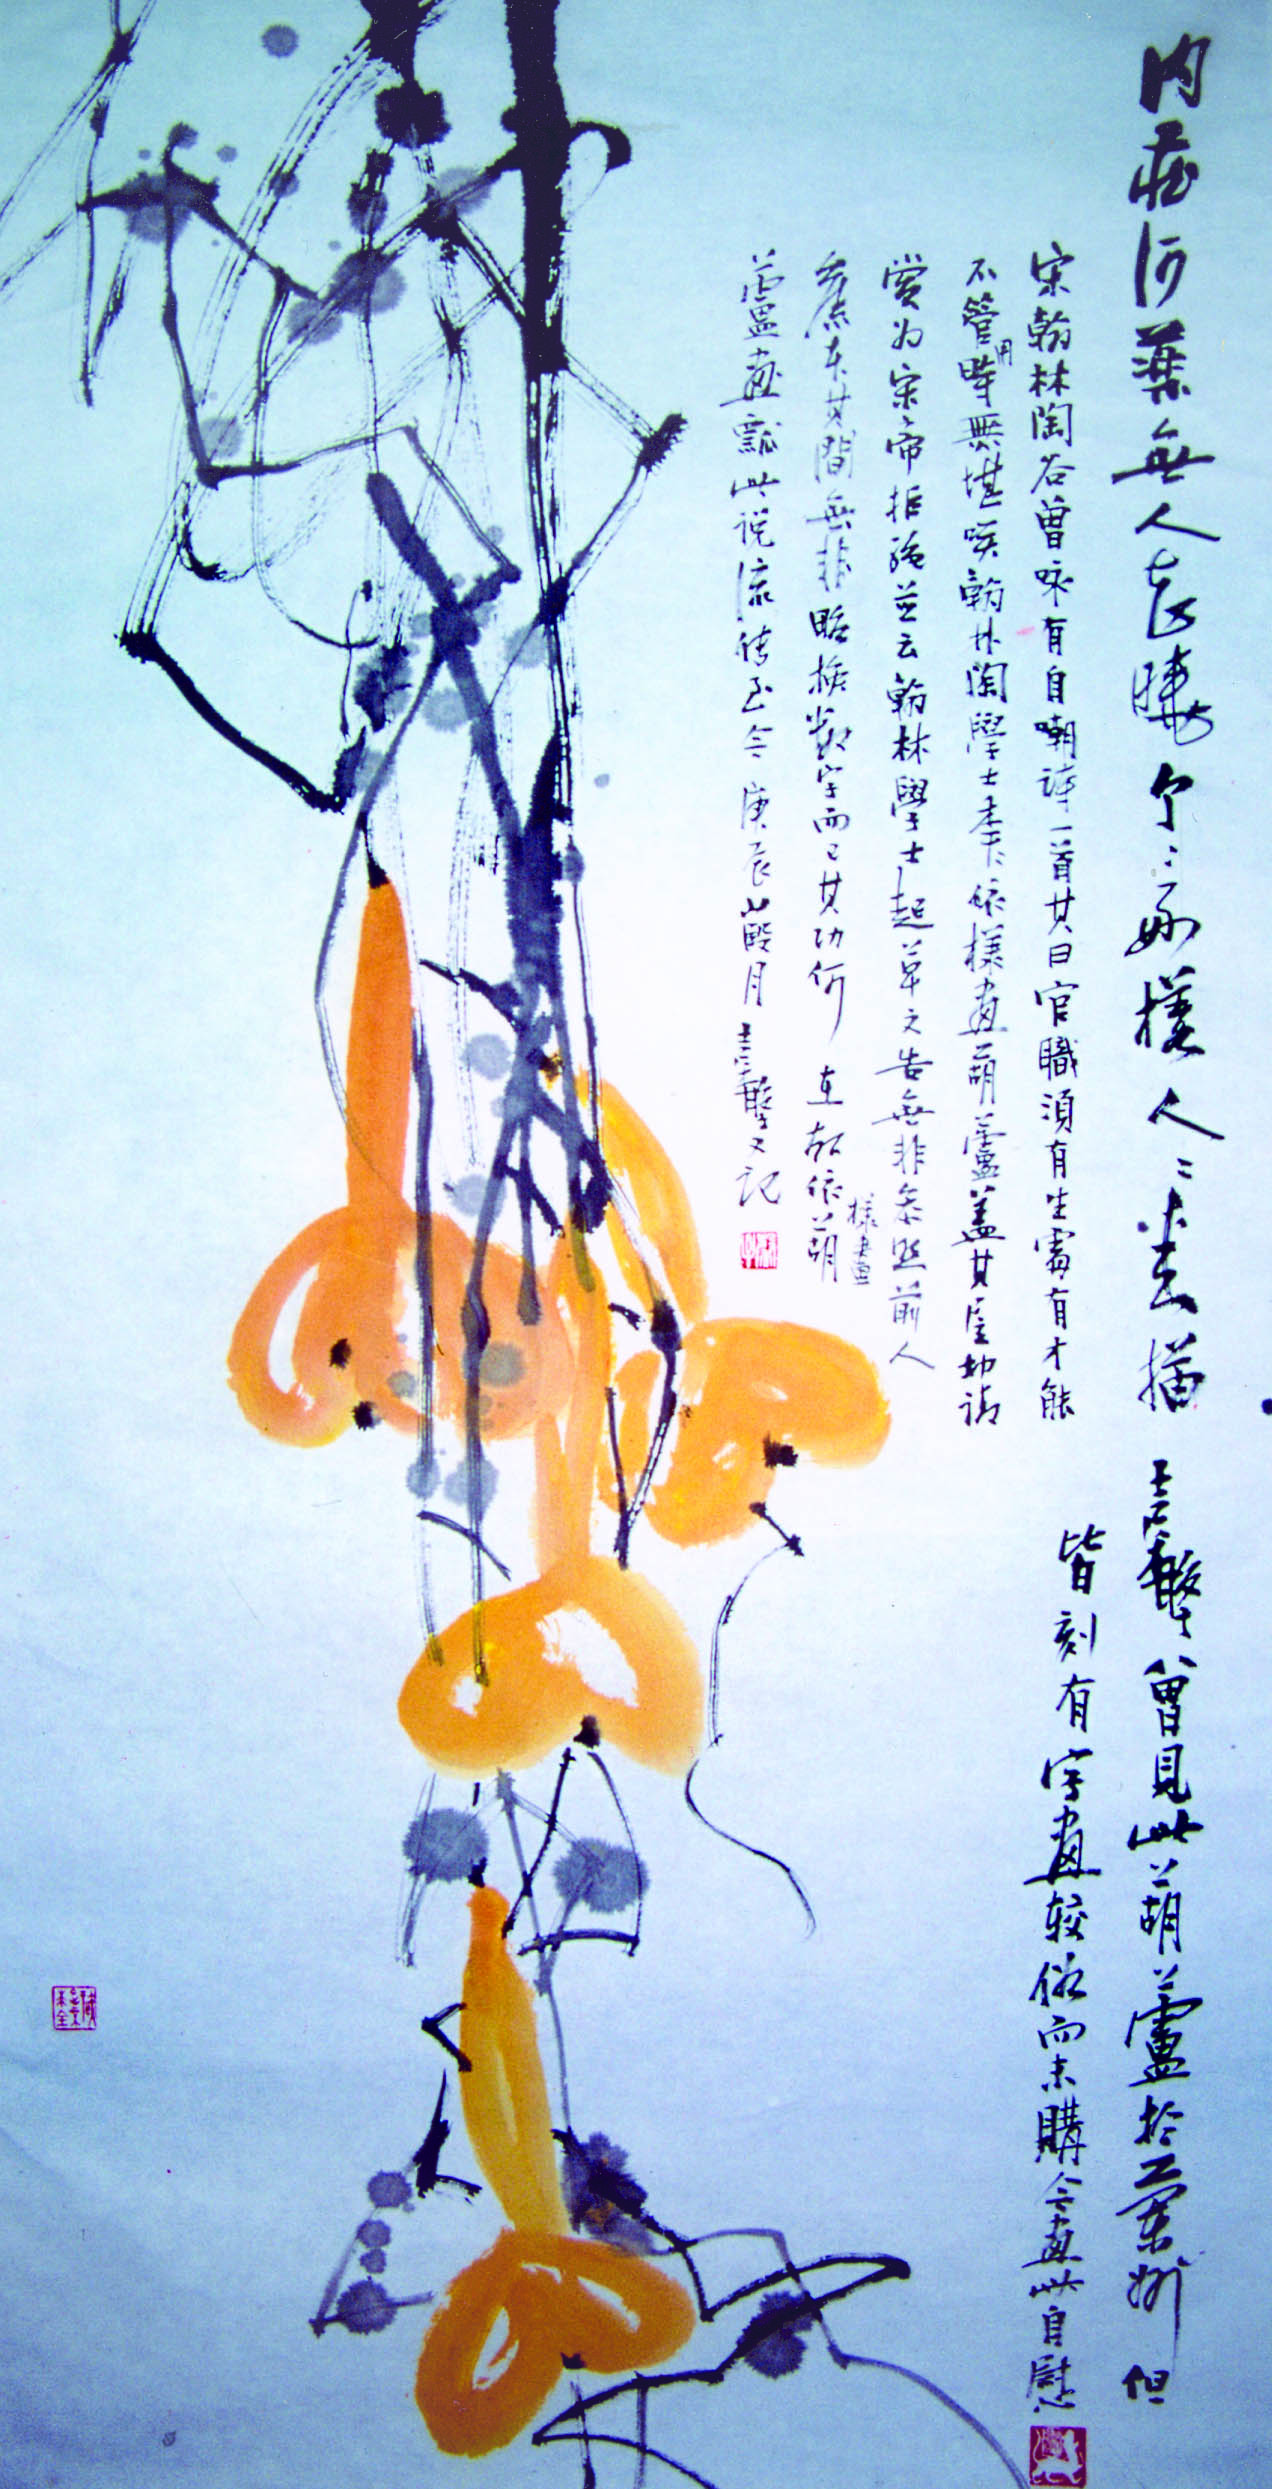 内 何藥無人 曉 个:  樣人:去描 曾見此葫蘆於蘭州 但
皆刻有字畫較俗而未購今畫此自慰
宋翰林陶谷曾咏有自嘲詩一首其曰官職須有生處有才能
不管用時無堪笑翰林陶學士年年依樣畫葫蘆盖其屡 請
賞为宋帝拒絕並云翰林學士起草文告無非参照前人
舊本其間無非略換數字而已其功何在故依樣畫葫
蘆畫瓢此说流传至今庚辰 月 又記